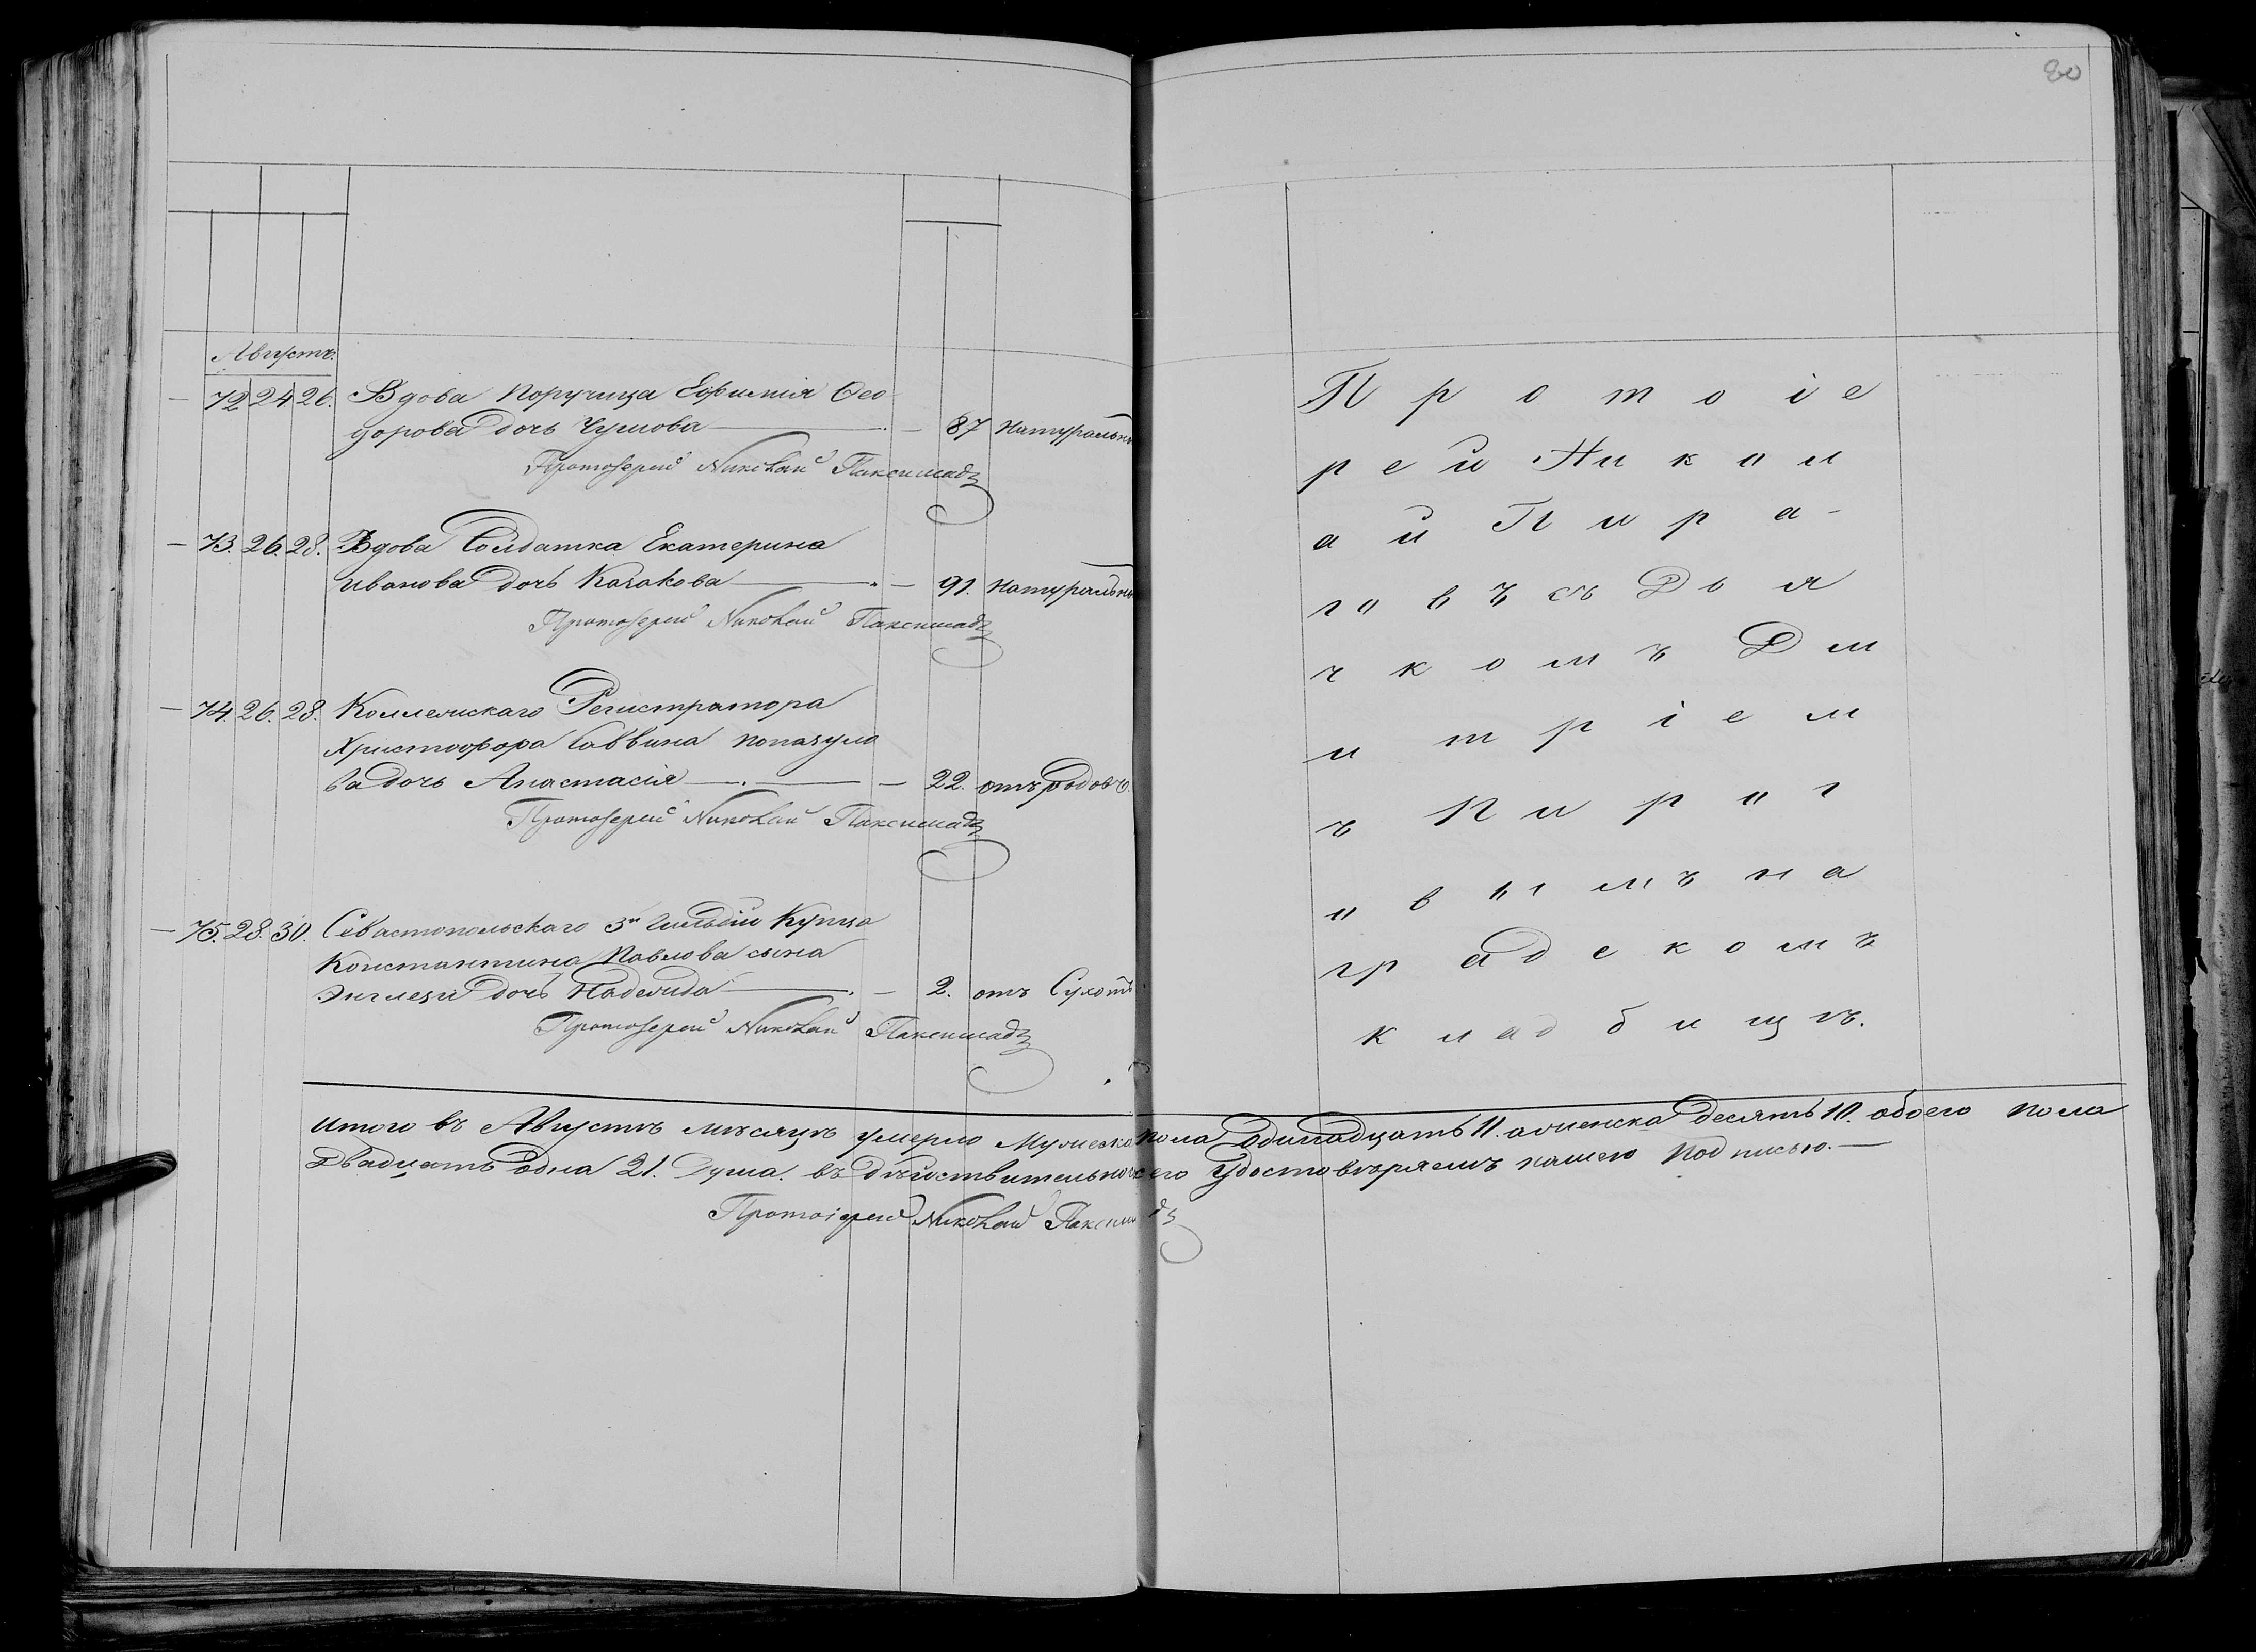 80
Августъ.
— 72 24 26. Вдова Поручица Ефимія Ѳео
дорова дочь Чумова — 87 натуральн
Протоіерей Николай Паксимадъ
— 73. 26. 28. Вдова Солдатка Екатерина
Иванова дочь Казакова — 91. натуральн
Протоіерей Николай Паксимадъ
— 74. 26. 28. Коллежскаго Регистратора
Христофора Саввина Попазуло
ва дочь Анастасія — 22. отъ родовъ.
Протоіерей Николай Паксимадъ
— 75. 28. 30. Севастопольскаго 3й Гильдіи Купца
Константина Павлова сына
Энглези дочь Надежда — 2. отъ Сухот
Протоіерей Николай Паксимадъ
Протоіе
рей Никол
ай Пира
говъ съ Дья
чкомъ Дм
итріем
ъ Пирог
овымъ на
градскомъ
кладбищѣ.
Итого въ Августѣ мѣсяцѣ умерло Мужеска пола одинадцать 11. а женска десять 10. обоего пола
двадцать одна 21. душа. въ дѣйствительности чего удостовѣряемъ нашею подписью. —
Протоіерей Николай Паксимадъ